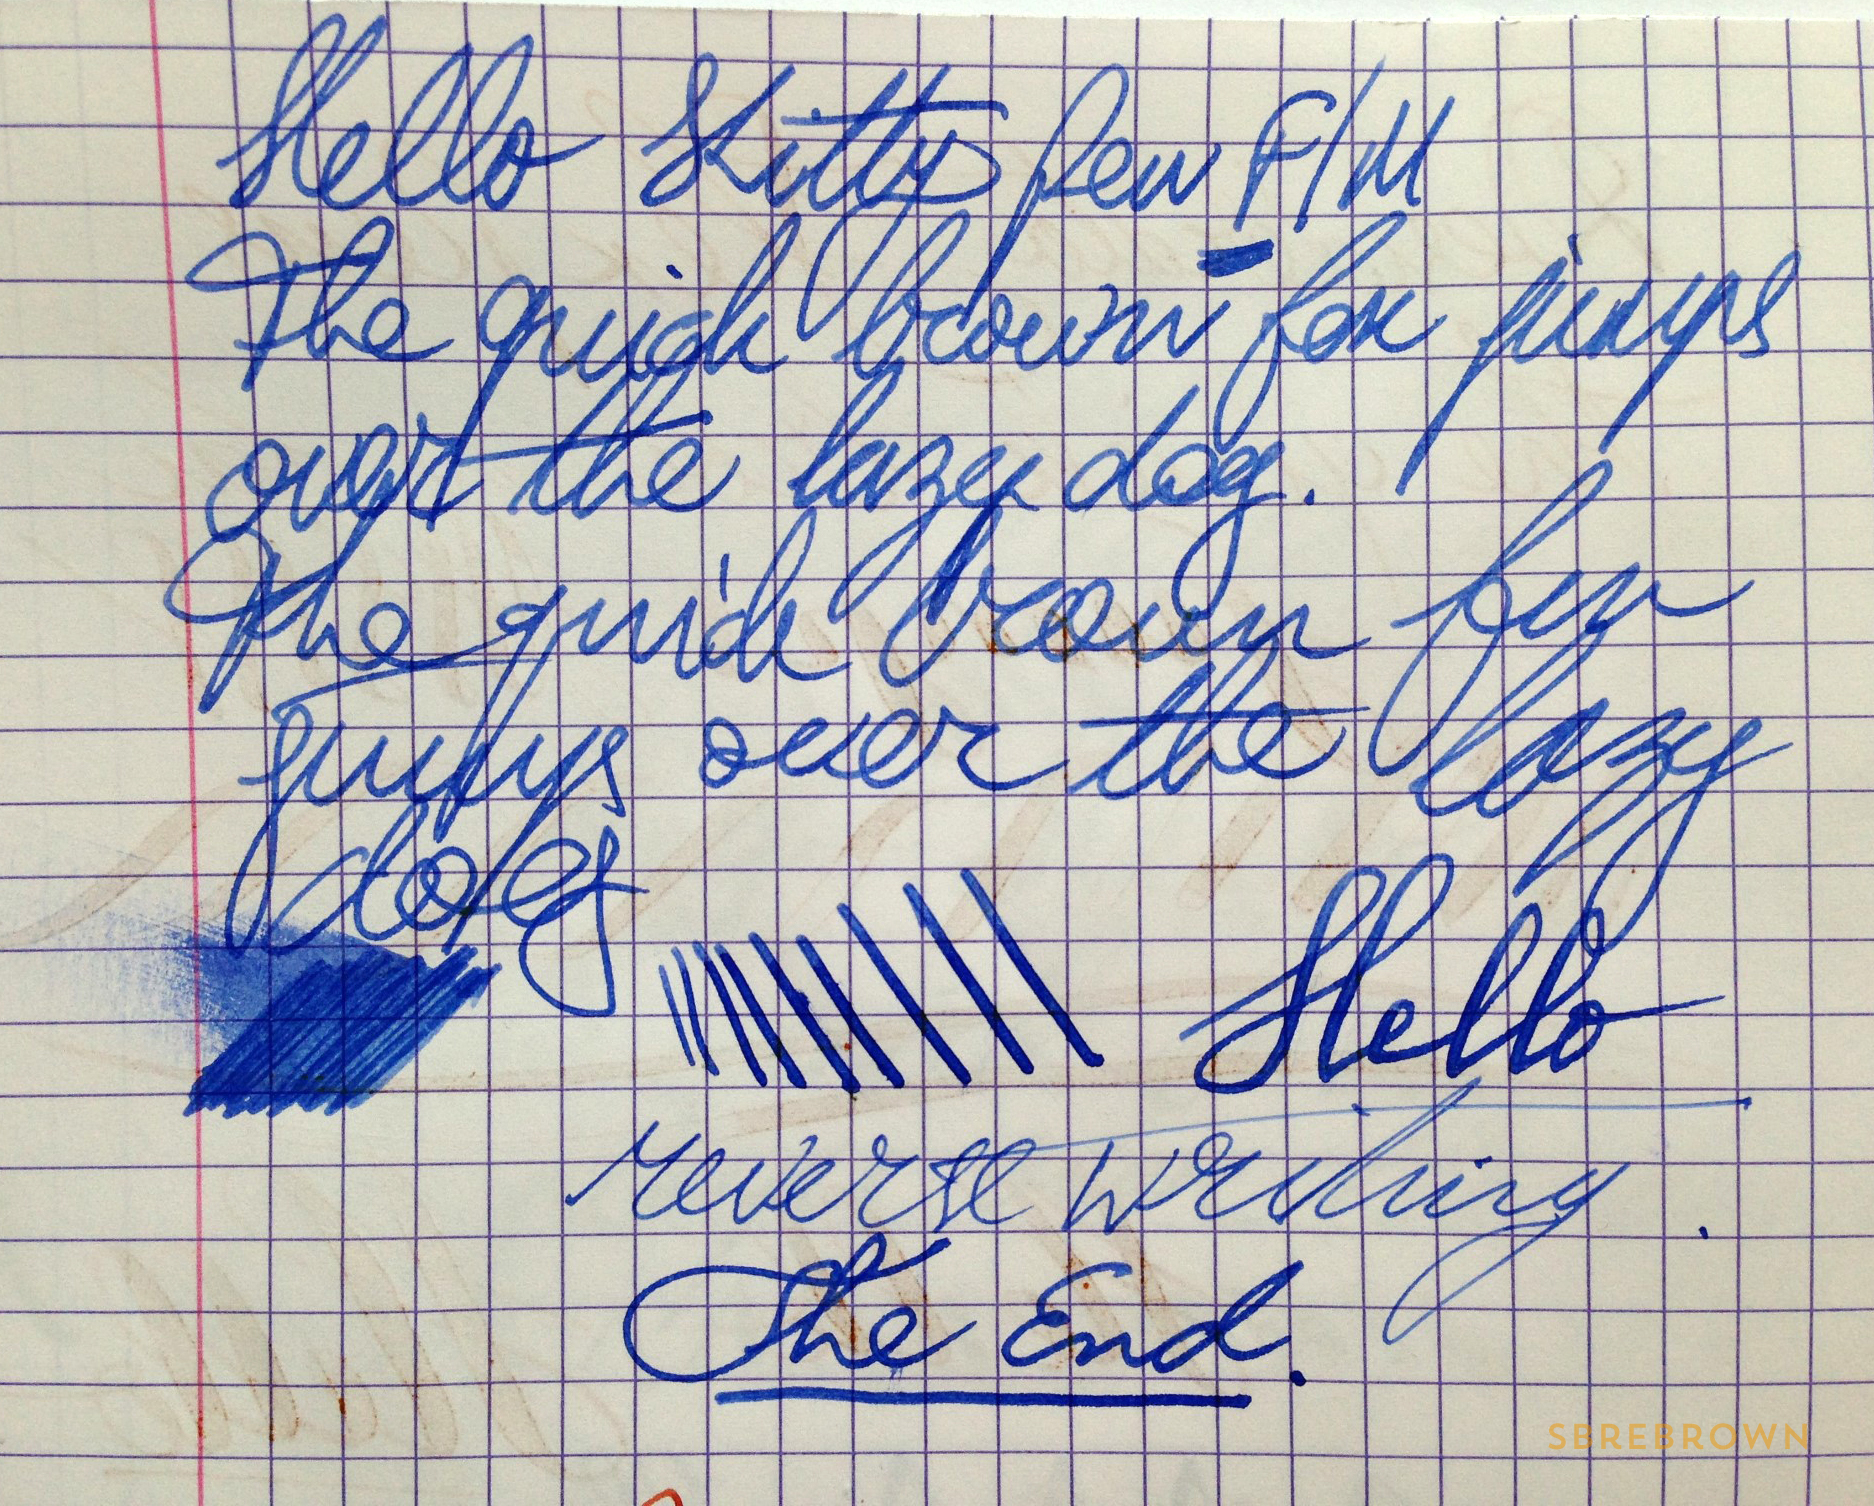 Hello Kitty Pen F/M
The quick brown fox jumps
over the lazy dog.
The quick brown fox
jumps over the lazy
dog
Hello
reverse writing.
The End.
SBREBROWN